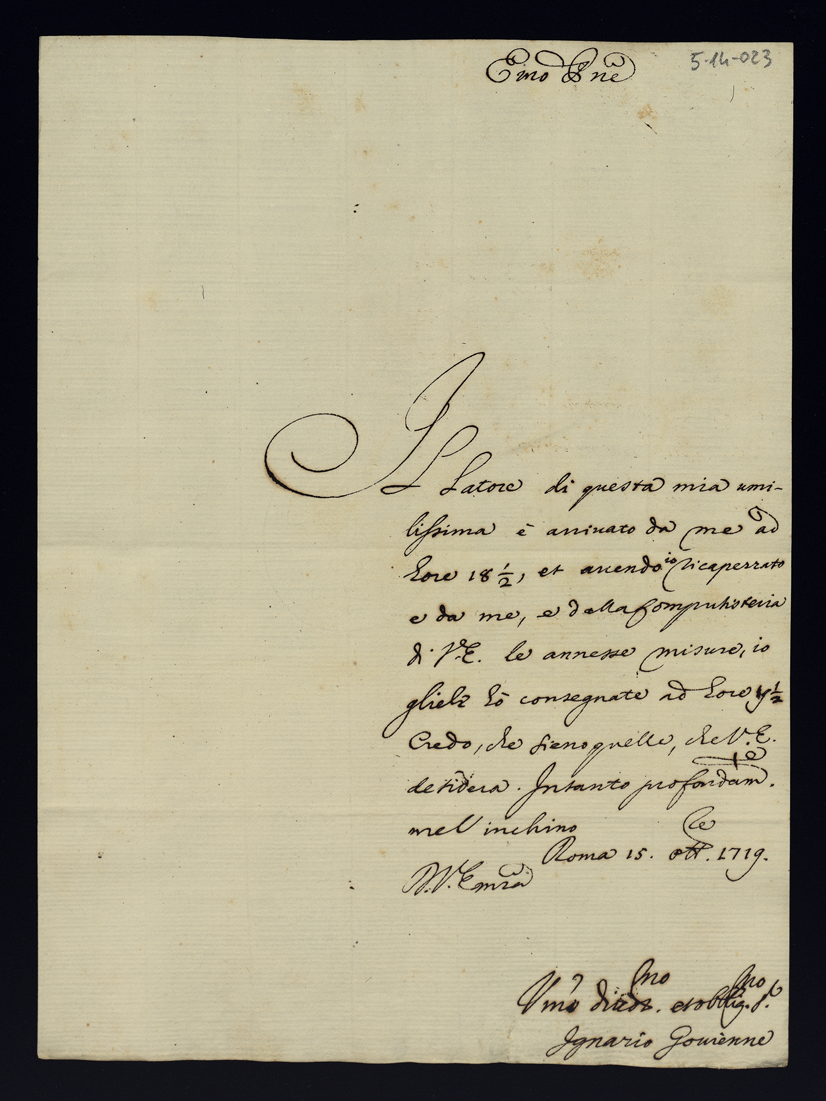 Emo Pne
5-14-023
Il Latore di questa mia umi-
lissima è arrivato da me ad
hore 18 1/2, et avendo io ricapezzato
e da me, e dalla Computisteria
di V.E. le annesse misure, io
gliele hò consegnate ad hore
Credo, che sieno quelle, che V.E.
desidera. Intanto profondamte
me l'inchino
Roma 15. ottre. 1719.
D. V. Emza
Vmo et obblig.mo
Ignazio